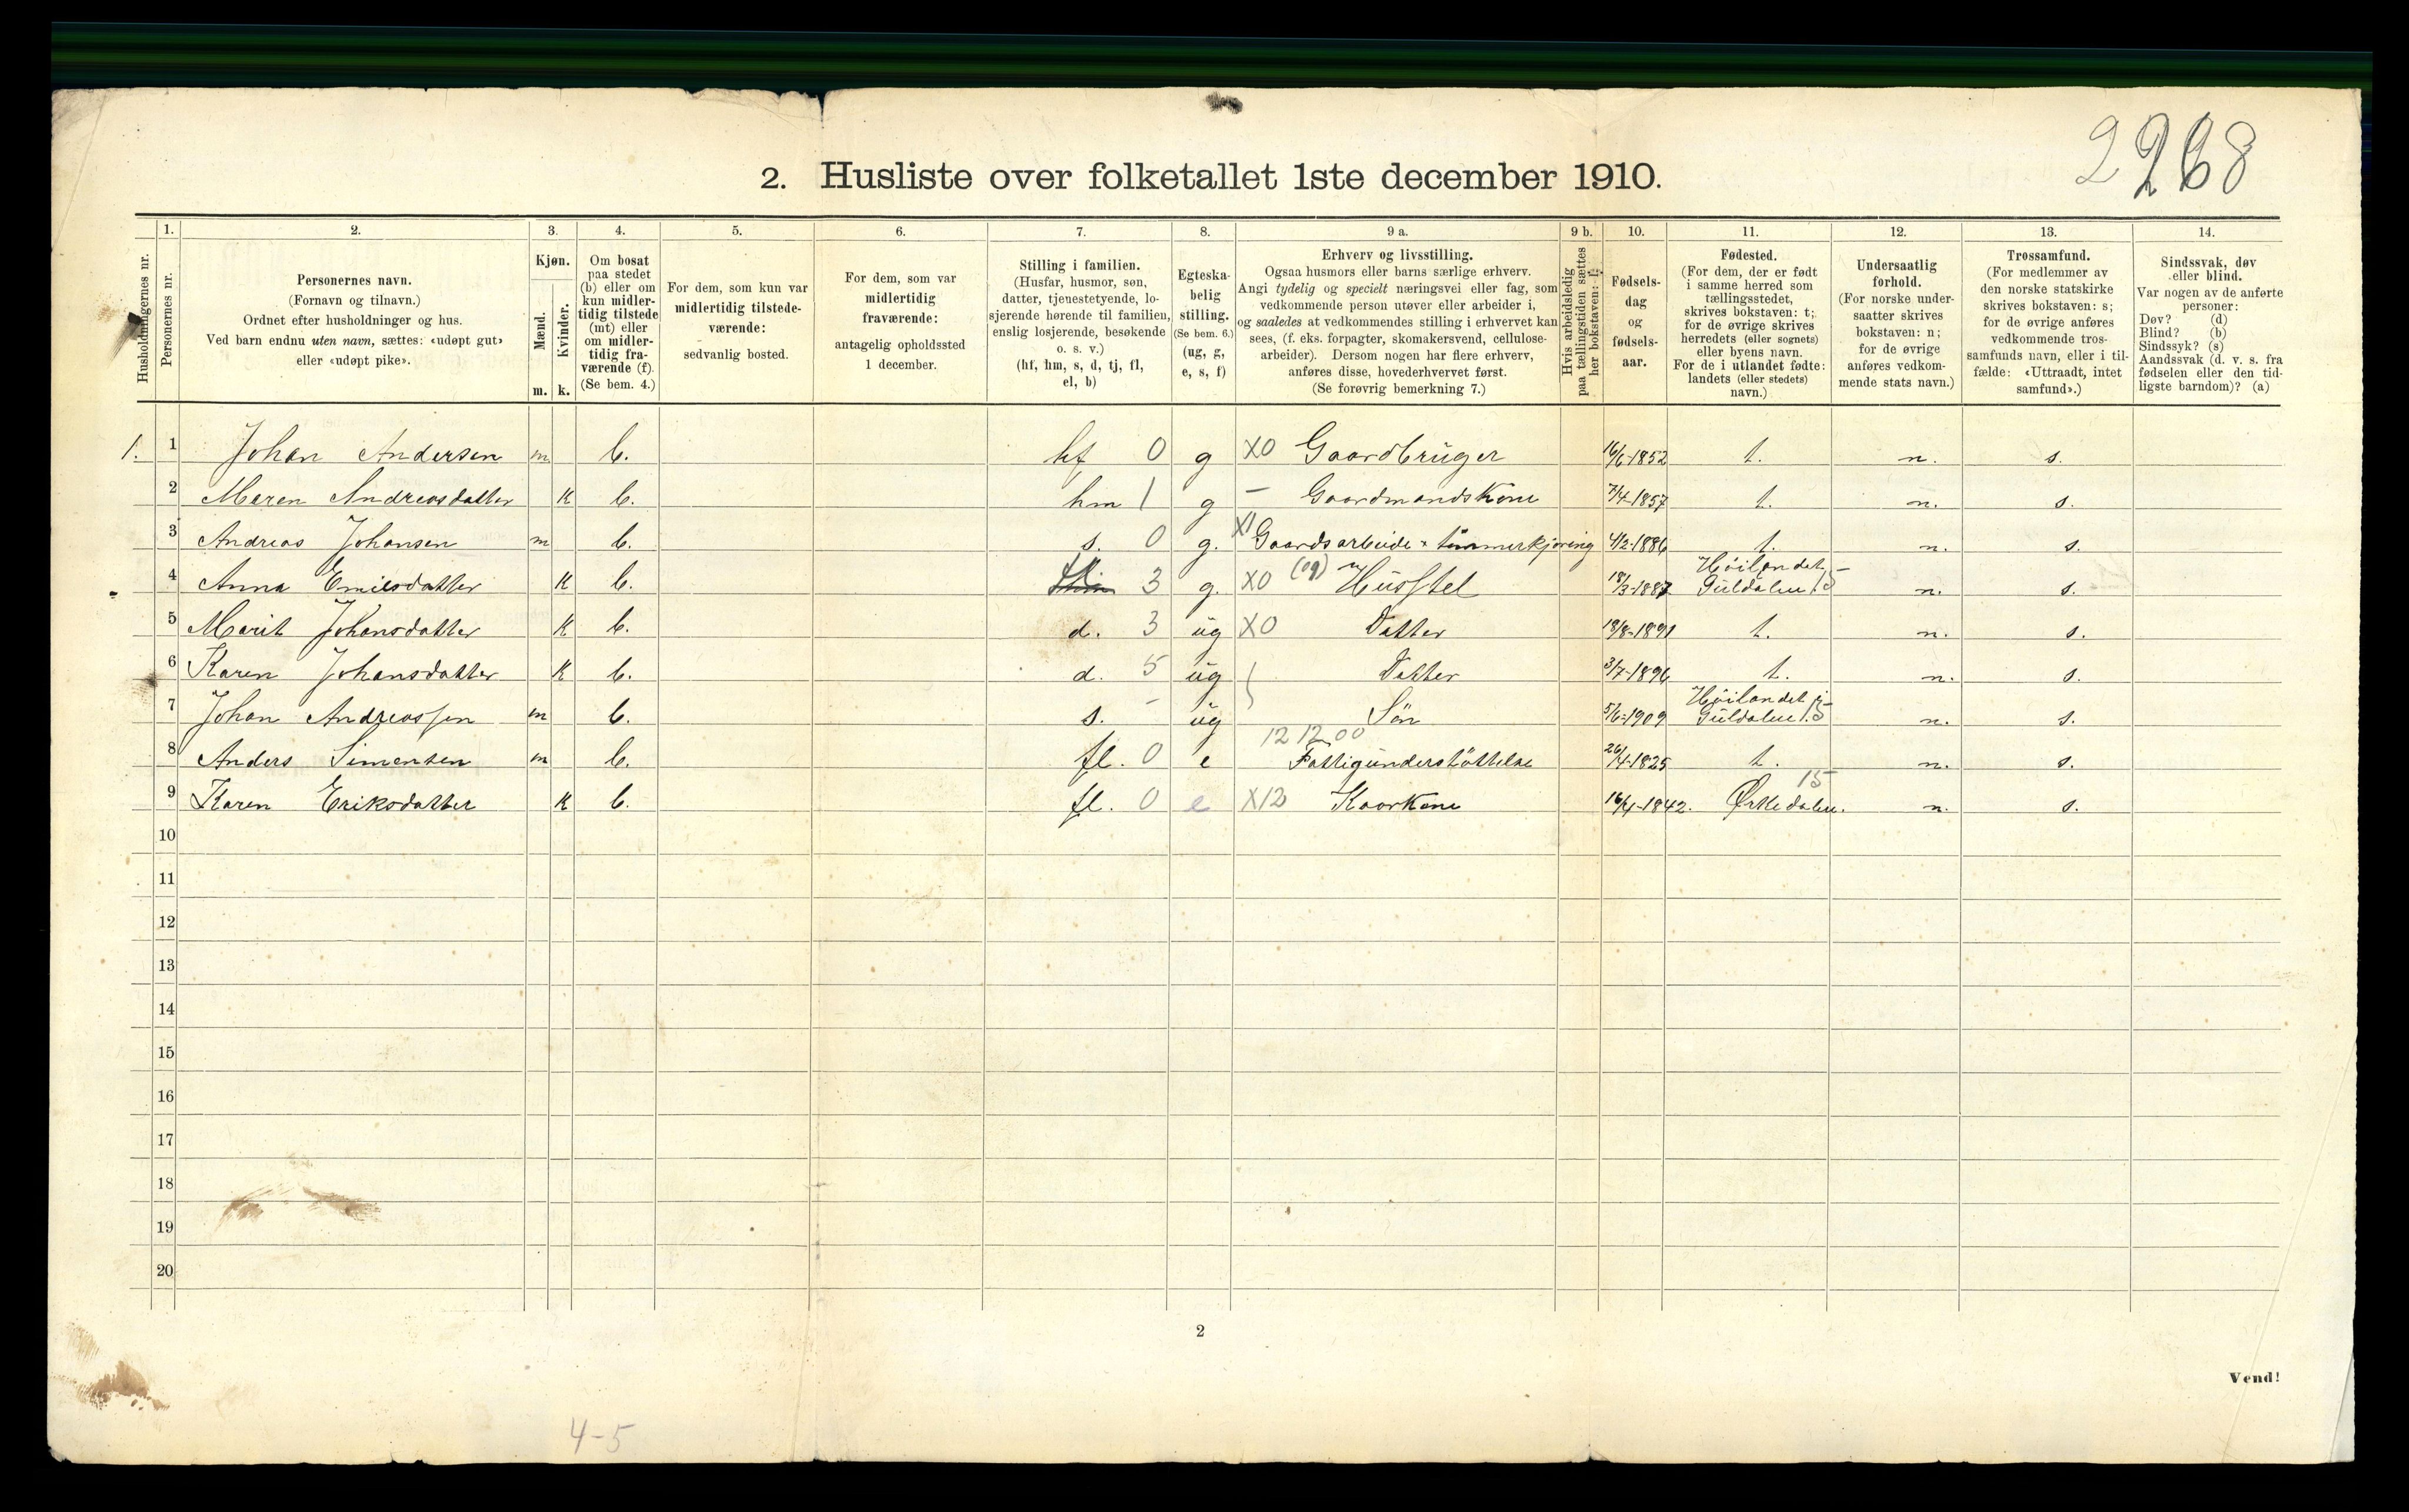 2268
2. Husliste over folketallet 1ste december 1910.
1. 2. 3. 4. 5. 6. 7. 8. 9 a. 9 b. 10. 11. 12. 13. 14.
Husholdningernes nr.
Personernes nr.
Personernes navn.
(Fornavn og tilnavn.)
Ordnet efter husholdninger og hus.
Ved barn endnu uten navn, sættes: «udøpt gut»
eller «udøpt pike».
Kjøn.
Mænd.
Kvinder.
m. k.
Om bosat
paa stedet
(b) eller om
kun midler-
tidig tilstede
(mt) eller
om midler-
tidig fra-
værende (f).
(Se bem. 4.)
For dem, som kun var
midlertidig tilstede-
værende:
sedvanlig bosted.
For dem, som var
midlertidig
fraværende:
antagelig opholdssted
1 december.
Stilling i familien.
(Husfar, husmor, søn,
datter, tjenestetyende, lo-
sjerende hørende til familien,
enslig losjerende, besøkende
o. s. v.)
(hf, hm, s, d, tj, fl,
el, b)
Egteska-
belig
stilling.
(Se bem. 6.)
(ug, g,
e, s, f)
Erhverv og livsstilling.
Ogsaa husmors eller barns særlige erhverv.
Angi tydelig og specielt næringsvei eller fag, som
vedkommende person utøver eller arbeider i,
og saaledes at vedkommendes stilling i erhvervet kan
sees, (f. eks. forpagter, skomakersvend, cellulose-
arbeider). Dersom nogen har flere erhverv,
anføres disse, hovederhvervet først.
(Se forøvrig bemerkning 7.)
Hvis arbeidsledig
paa tællingstiden sættes
her bokstaven: l.
Fødsels-
dag
og
fødsels-
aar.
Fødested.
(For dem, der er født
i samme herred som
tællingsstedet,
skrives bokstaven: t;
for de øvrige skrives
herredets (eller sognets)
eller byens navn.
For de i utlandet fødte:
landets (eller stedets)
navn.)
Undersaatlig
forhold.
(For norske under-
saatter skrives
bokstaven: n;
for de øvrige
anføres vedkom-
mende stats navn.)
Trossamfund.
(For medlemmer av
den norske statskirke
skrives bokstaven: s;
for de øvrige anføres
vedkommende tros-
samfunds navn, eller i til-
fælde: «Uttraadt, intet
samfund».)
Sindssvak, døv
eller blind.
Var nogen av de anførte
personer:
Døv? (d)
Blind? (b)
Sindssyk? (s)
Aandssvak (d. v. s. fra
fødselen eller den tid-
ligste barndom)? (a)
1. 1 Johan Andersen m b. hf 0 g X0 Gaardbrüger 16/6-1852 t. n. s.
2 Maren Andreasdatter k b. hm 1 g – Gaardmandskone 7/4-1857 t. n. s.
3 Andreas Johansen m b. s. 0 g. X1 Gaardsarbeide tømmerkjøring 4/2-1886 t. n. s.
4 Anna Emilsdatter k b. fl. 3 g. X0 (og) Husstel 18/3-1887 Höilandet Güldalen 15 n. s.
5 Marit Johansdatter k b. d. 3 üg X0 Datter 18/8-1891 t. n. s.
6 Karen Johansdatter k b. d. 5 üg Datter 3/7-1896 t. n. s.
7 Johan Andreassen m b. s. – üg Sön 5/6-1909 Höilandet Güldalen 15 n. s.
12 12 00
8 Anders Simensen m b. fl. 0 e Fattigünderstöttelse 26/4-1825 t. n. s.
15
9 Karen Eriksdatter k b. fl. 0 e X12 Kaarkone 16/4-1842. Ørkedalen. n. s.
10
11
12
13
14
15
16
17
18
19
20
2
Vend!
4-5